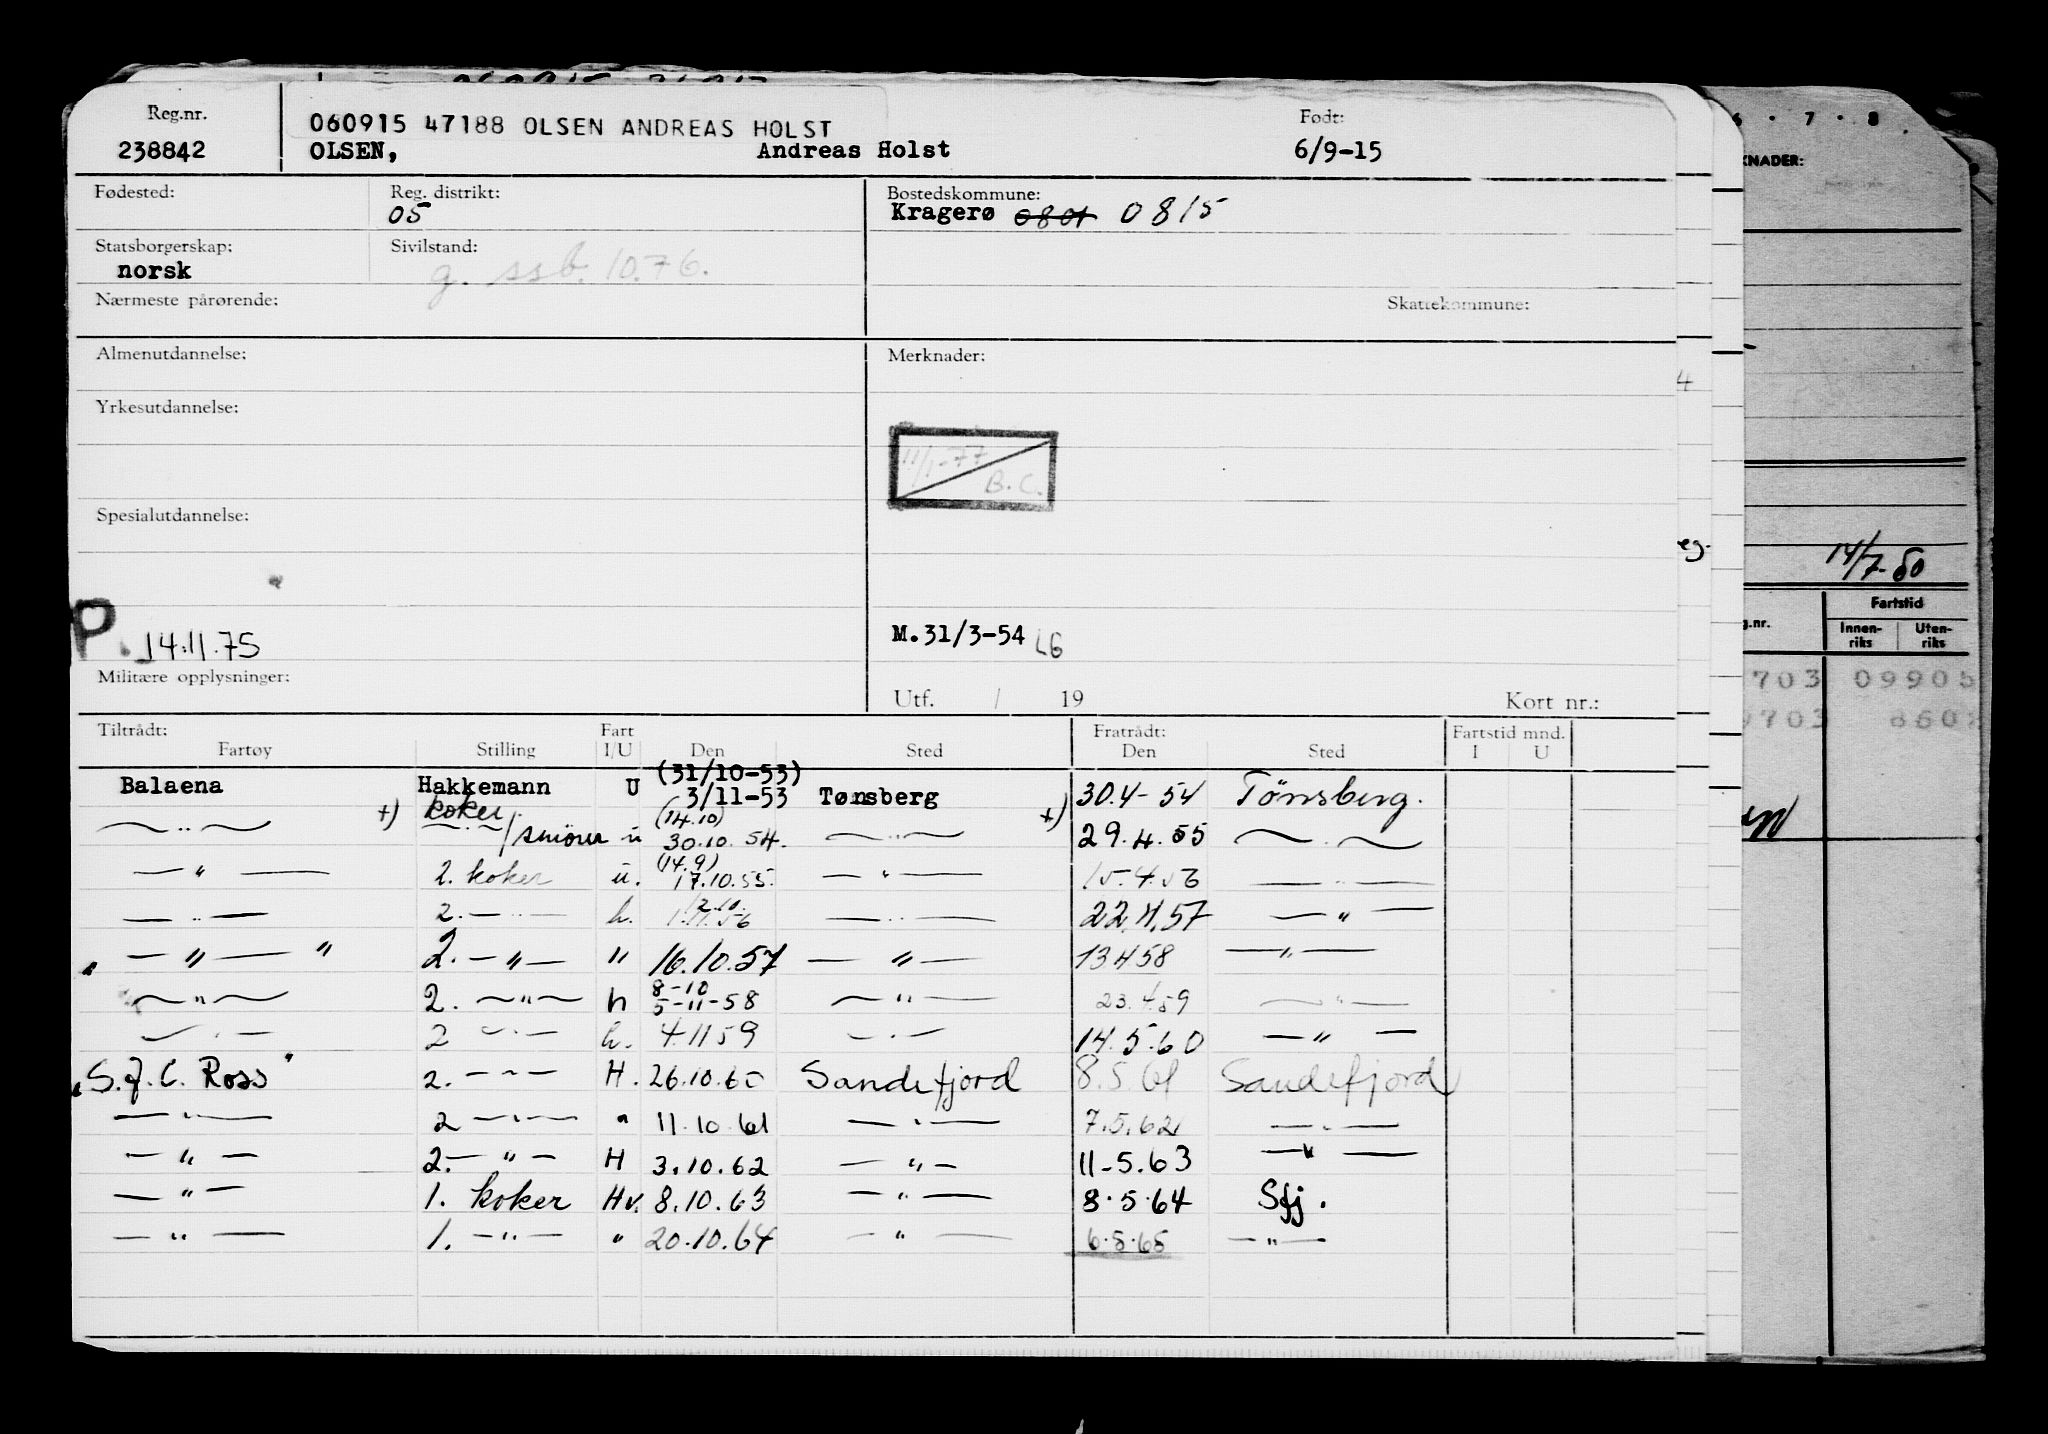 Reg.nr. 060915 47188 OLSEN ANDREAS HOLST Født:
238842 OLSEN, Andreas Holst 6/9-15
Fødested: Reg. distrikt: Bostedskommune:
05 Kragerø 0801 0815
Statsborgerskap: Sivilstand:
norsk g. ssb. 10.76.
Nærmeste pårørende: Skattekommune:
Almenutdannelse: Merknader:
Yrkesutdannelse:
11/1-77
B.C.
Spesialutdannelse:
P. 14.11.75 M.31/3-54 LG
Militære opplysninger: Utf. / 19 Kort nr.:
Tiltrådt: Fart Fratrådt: Fartstid mnd.
Fartøy Stilling I/U Den Sted Den Sted I U
(31/10-53)
Balaena Hakkemann U 3/11-53 Tønsberg 30.4-54 Tönsberg.
+) koker +)
(14.10)
— " — — " — / smörer u 30.10.54. — " — 29.4.55 — " —
(14.9)
— " — 2. koker u. 17.10.55. — " — 15.4.56 — " —
12.10.
— " — 2. — " — h. 1.11.56 — " — 22.4.57 — " —
" — " — " 2. — " — " 16.10.57 — " — 13 4 58 — " —
8-10
— " — 2. — " — h 5-11-58 — " — 23.4.59 — " —
— " — 2 — " — h. 4.11 59 — " — 14.5.60 — " —
"S.J.C. Ross" 2. — " — H. 26.10.60 Sandefjord 8.5.61 Sandefjord
— " — 2 — " — " 11.10.61 — " — 7.5.62 — " —
— " — 2. — " — H 3.10.62 — " — 11-5.63 — " —
— " — 1. koker Hv. 8.10.63 — " — 8.5.64 Sfj.
— " — 1. — " — " 20.10.64 — " — 6.5.65 — " —
6 . 7 . 8 .
KNADER:
4
eg.
14/7-80
Fartstid
g.nr. Innen-riks Uten-riks
703 09905